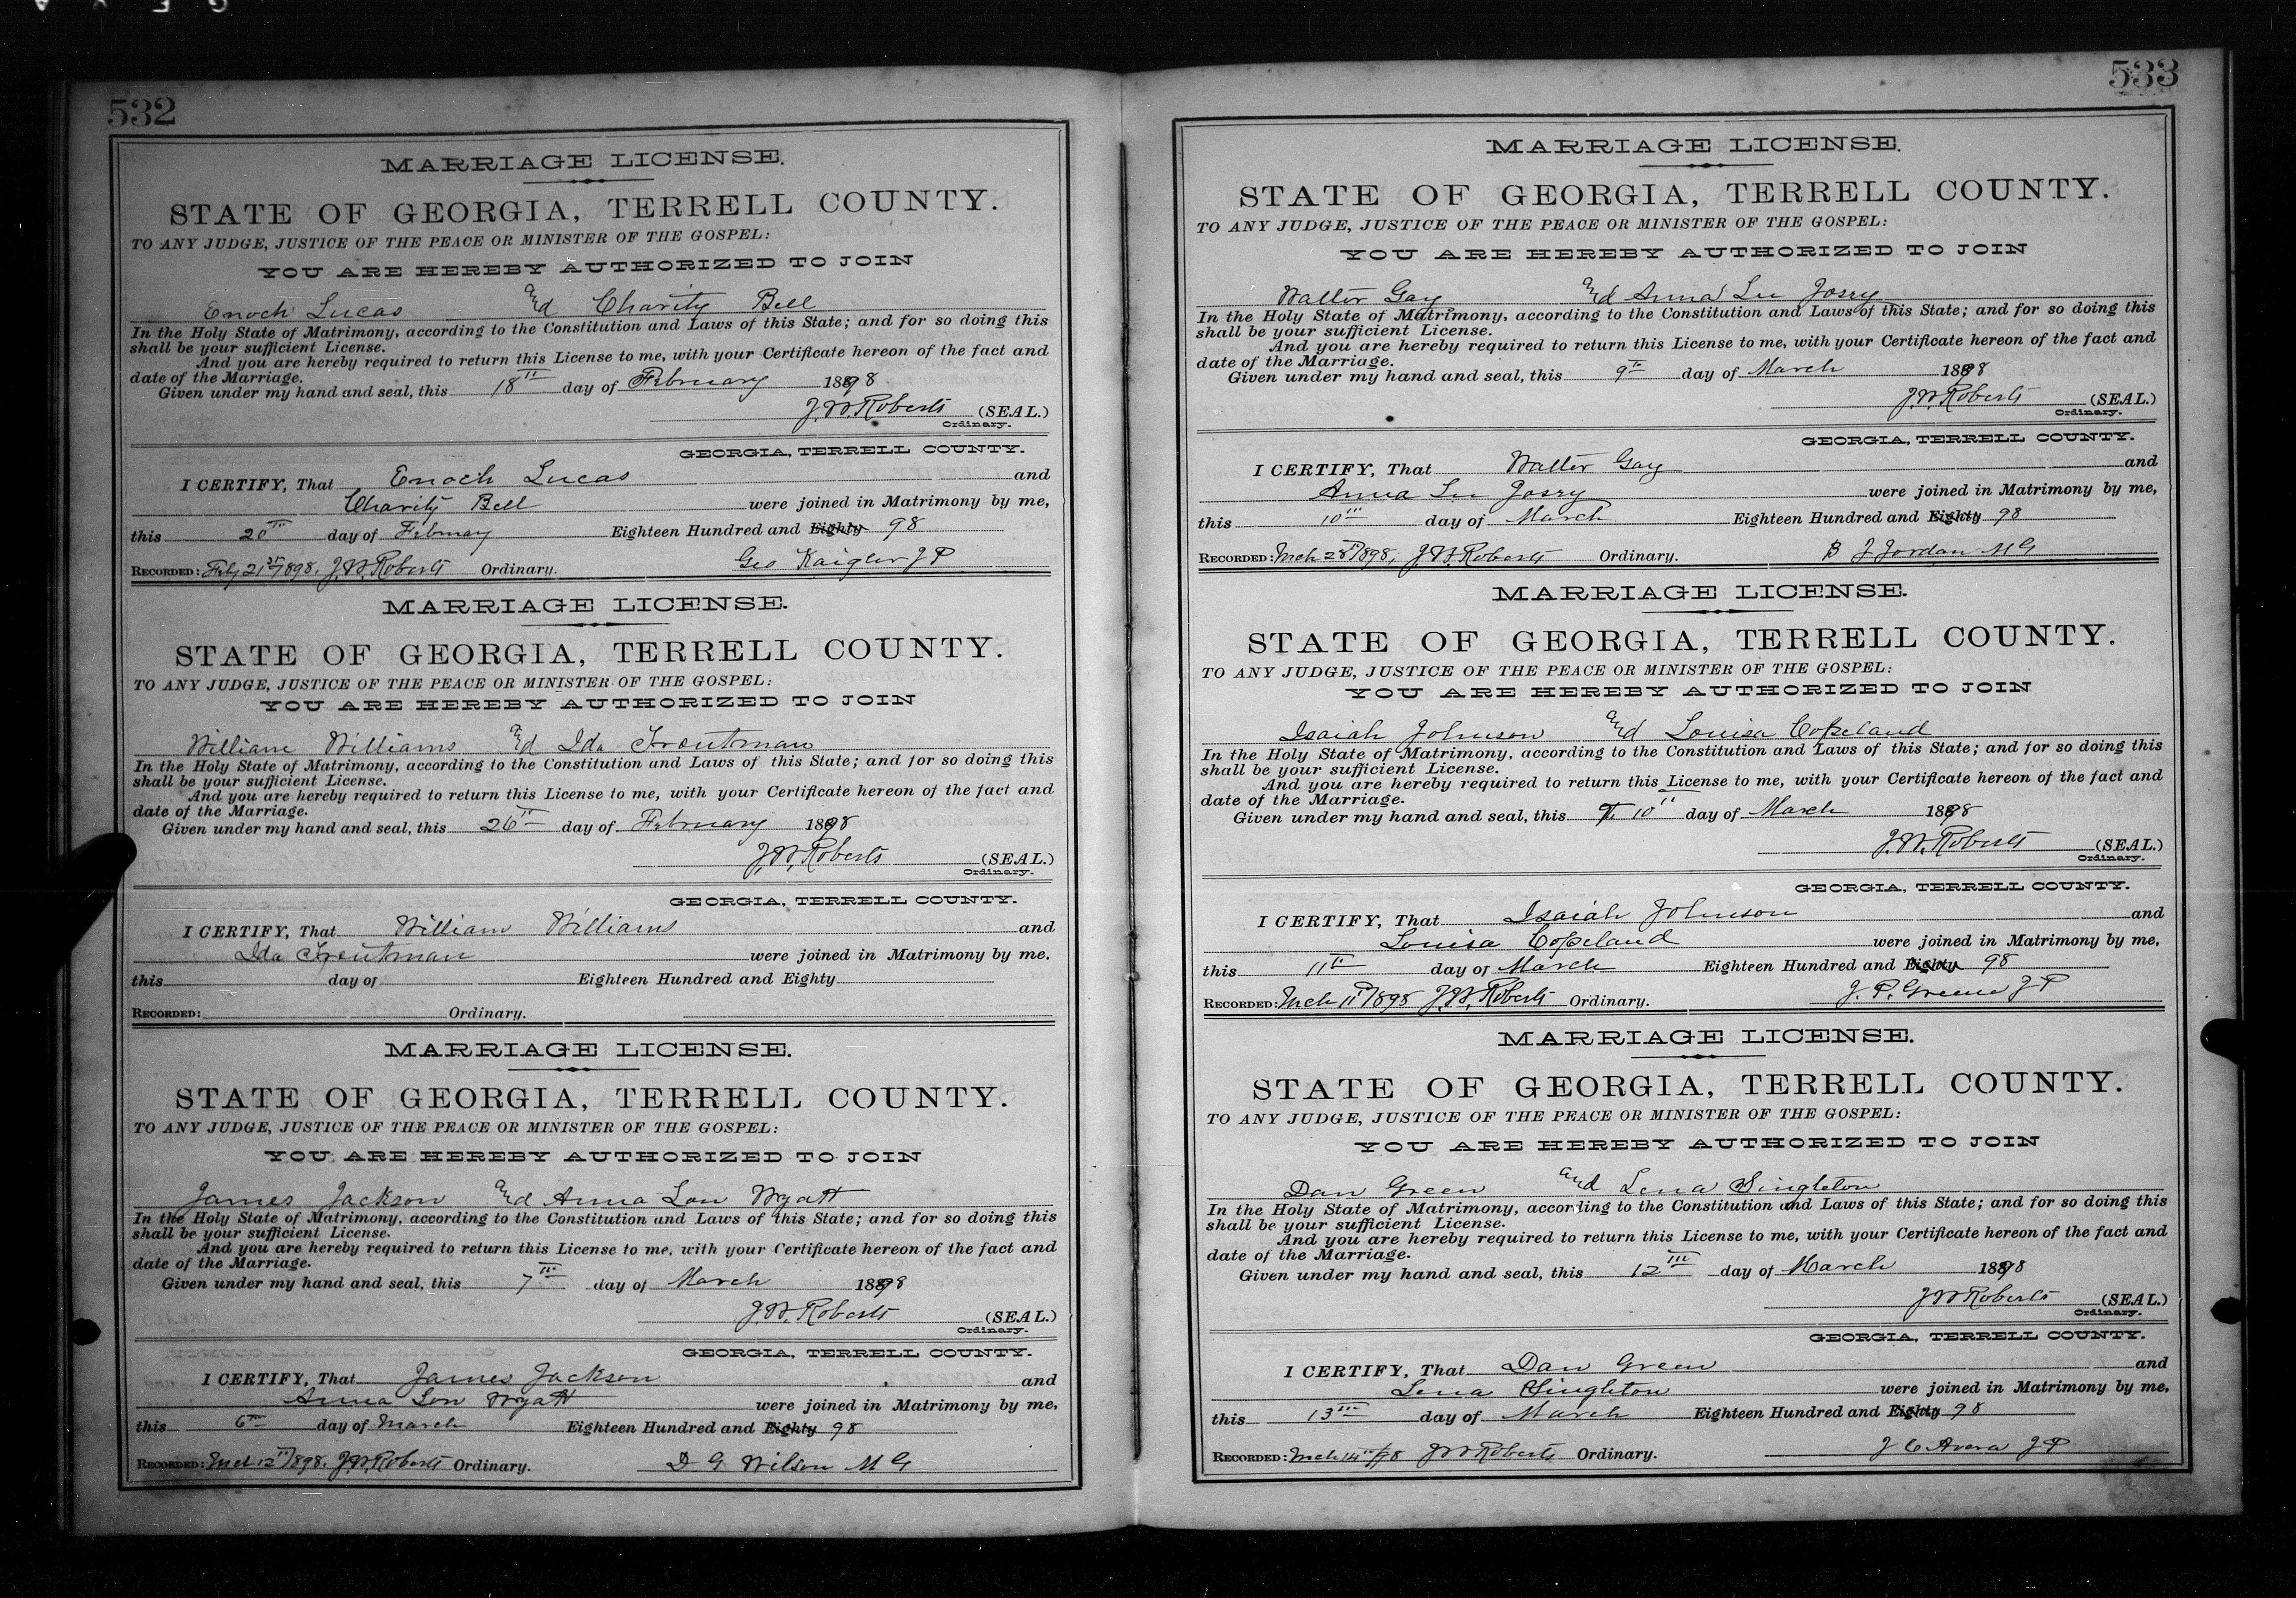 532
MARRIAGE LICENSE.
STATE OF GEORGIA, TERRELL COUNTY.
TO ANY JUDGE, JUSTICE OF THE PEACE OR MINISTER OF THE GOSPEL:
YOU ARE HEREBY AUTHORIZED TO JOIN
Enoch Lucas and Charity Bell
In the Holy State of Matrimony, according to the Constitution and Laws of this State; and for so doing this
shall be your sufficient License.
And you are hereby required to return this License to me, with your Certificate hereon of the fact and
date of the Marriage.
Given under my hand and seal, this 18th day of February 1898
J.W. Roberts (SEAL.)
Ordinary.
GEORGIA, TERRELL COUNTY.
I CERTIFY, That Enoch Lucas and
Charity Bell were joined in Matrimony by me,
this 20th day of Februay Eighteen Hundred and Eighty 98
RECORDED: Feby 21st 1898. J.W. Roberts Ordinary. Geo Kaigler J P
MARRIAGE LICENSE.
STATE OF GEORGIA, TERRELL COUNTY.
TO ANY JUDGE, JUSTICE OF THE PEACE OR MINISTER OF THE GOSPEL:
YOU ARE HEREBY AUTHORIZED TO JOIN
William Williams and Ida Troutman
In the Holy State of Matrimony, according to the Constitution and Laws of this State; and for so doing this
shall be your sufficient License.
And you are hereby required to return this License to me, with your Certificate hereon of the fact and
date of the Marriage.
Given under my hand and seal, this 26th day of February 1898
J.W. Roberts (SEAL.)
Ordinary.
GEORGIA, TERRELL COUNTY.
I CERTIFY, That William Williams and
Ida Troutman were joined in Matrimony by me,
this day of Eighteen Hundred and Eighty
RECORDED: Ordinary.
MARRIAGE LICENSE.
STATE OF GEORGIA, TERRELL COUNTY.
TO ANY JUDGE, JUSTICE OF THE PEACE OR MINISTER OF THE GOSPEL:
YOU ARE HEREBY AUTHORIZED TO JOIN
James Jackson and Anna Lou Wyatt
In the Holy State of Matrimony, according to the Constitution and Laws of this State; and for so doing this
shall be your sufficient License.
And you are hereby required to return this License to me, with your Certificate hereon of the fact and
date of the Marriage.
Given under my hand and seal, this 7th day of March 1898
J.W. Roberts (SEAL.)
Ordinary.
GEORGIA, TERRELL COUNTY.
I CERTIFY, That James Jackson and
Anna Lou Wyatt were joined in Matrimony by me,
this 6th day of March Eighteen Hundred and Eighty 98
RECORDED: Mch 12th 1898. J.W. Roberts Ordinary. D G Wilson M G
533
MARRIAGE LICENSE.
STATE OF GEORGIA, TERRELL COUNTY.
TO ANY JUDGE, JUSTICE OF THE PEACE OR MINISTER OF THE GOSPEL:
YOU ARE HEREBY AUTHORIZED TO JOIN
Walter Gay and Anna Lu Jossy
In the Holy State of Matrimony, according to the Constitution and Laws of this State; and for so doing this
shall be your sufficient License.
And you are hereby required to return this License to me, with your Certificate hereon of the fact and
date of the Marriage.
Given under my hand and seal, this 9th day of March 1898
J.W. Roberts (SEAL.)
Ordinary.
GEORGIA, TERRELL COUNTY.
I CERTIFY, That Walter Gay and
Anna Lu Jossy were joined in Matrimony by me,
this 10th day of March Eighteen Hundred and Eighty 98
RECORDED: Mch 28th 1898, J.W. Roberts Ordinary. B J Jordan M G
MARRIAGE LICENSE.
STATE OF GEORGIA, TERRELL COUNTY.
TO ANY JUDGE, JUSTICE OF THE PEACE OR MINISTER OF THE GOSPEL:
YOU ARE HEREBY AUTHORIZED TO JOIN
Isaiah Johnson and Louisa Copeland
In the Holy State of Matrimony, according to the Constitution and Laws of this State; and for so doing this
shall be your sufficient License.
And you are hereby required to return this License to me, with your Certificate hereon of the fact and
date of the Marriage.
Given under my hand and seal, this 10th day of March 1898
J.W. Roberts (SEAL.)
Ordinary.
GEORGIA, TERRELL COUNTY.
I CERTIFY, That Isaiah Johnson and
Louisa Copeland were joined in Matrimony by me,
this 11th day of March Eighteen Hundred and Eighty 98
RECORDED: Mch 11th 1898 J.W. Roberts Ordinary. J. P. Greene J P
MARRIAGE LICENSE.
STATE OF GEORGIA, TERRELL COUNTY.
TO ANY JUDGE, JUSTICE OF THE PEACE OR MINISTER OF THE GOSPEL:
YOU ARE HEREBY AUTHORIZED TO JOIN
Dan Green and Lena Singleton
In the Holy State of Matrimony, according to the Constitution and Laws of this State; and for so doing this
shall be your sufficient License.
And you are hereby required to return this License to me, with your Certificate hereon of the fact and
date of the Marriage.
Given under my hand and seal, this 12th day of March 1898
J W Roberts (SEAL.)
Ordinary.
GEORGIA, TERRELL COUNTY.
I CERTIFY, That Dan Green and
Lena Singleton were joined in Matrimony by me,
this 13th day of March Eighteen Hundred and Eighty 98
RECORDED: Mch 14th/98 J W Roberts Ordinary. J C Avera J P